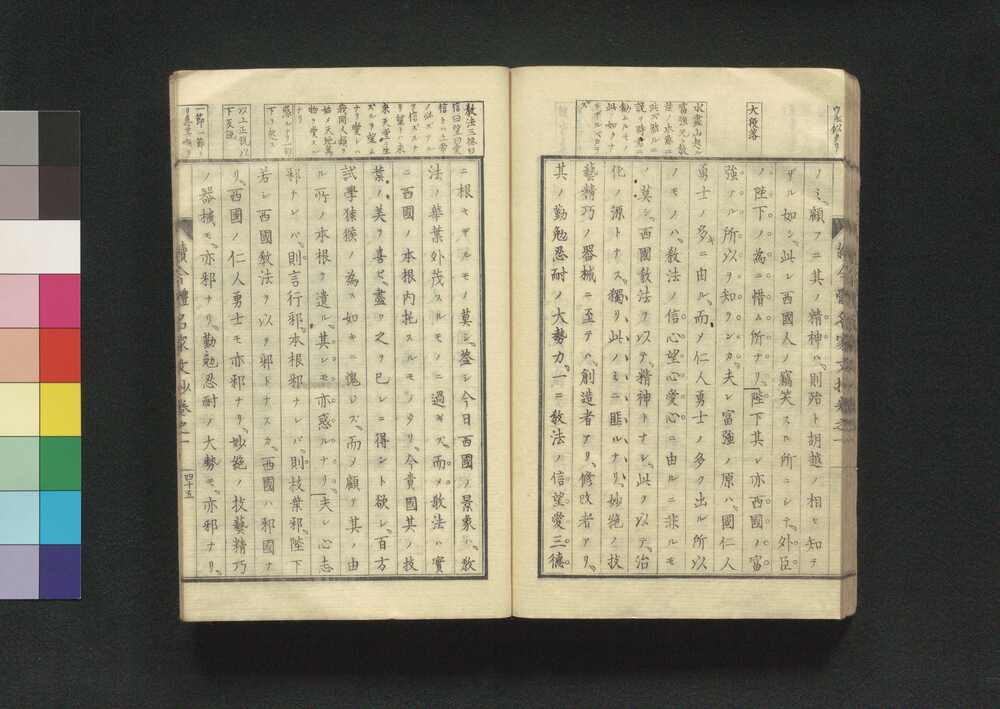 ノミ、顧フニ其ノ精神ハ、則殆ト胡越ノ相ヒ知ラ
ザル如シ、此レ西國人ノ竊笑スル所ニシテ、外臣
ノ陛下ノ為ニ惜ム所ナリ、陛下其レ亦西國ノ富
強ナル所以ヲ知ランカ、夫レ富強ノ原ハ、國仁人
勇士ノ多キニ由ル、而メ仁人勇士ノ多ク出ル所以
ノモノハ、教法ノ信心望心愛心ニ由ルニ非ルモ
ノ莫シ、西國教法ヲ以テ、精神トナシ、此ヲ以テ、治
化ノ源トナス、獨リ此ノミニ匪ルナリ、妙絶ノ技
藝精巧ノ器械ニ至テハ、創造者アリ、修改者アリ、
其ノ勤勉忍耐ノ大勢力、一ニ教法ノ信望愛三德
大段落
ニ根セザルモノ莫シ、蓋シ今日西國ノ景象ハ、教
法ノ華葉外茂スルモノニ過ギズ、而メ教法ハ實
ニ西國ノ本根内托スルモノタリ、今貴國其ノ枝
葉ノ美ヲ喜ビ、盡ク之ヲ已レニ得ント欲シ、百方
試學猿猴ノ為ス如キニ愧レズ、而メ顧テ其ノ由
ル所ノ本根ヲ遺ル、其レモ亦惑ルナリ、夫レ心志
邪ナレバ、則言行邪、本根邪ナレバ、則枝葉邪、陛下
若シ西國教法ヲ以テ邪トナスカ、西國ハ邪國ナ
リ、西國ノ仁人勇士モ亦邪ナリ、妙絶ノ技藝精巧
ノ器械モ、亦邪ナリ、勤勉忍耐ノ大勢モ、亦邪ナリ、
續今體名家文抄卷之一
四十五